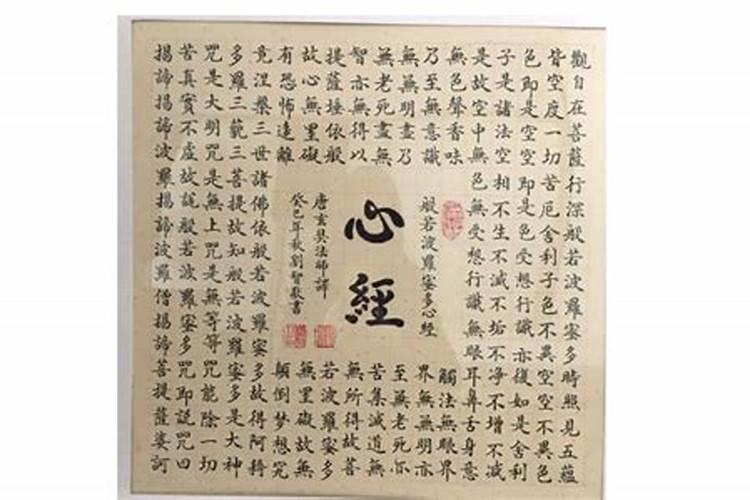 觀自在菩薩行深般若波羅蜜多時照見五蘊
皆空度一切苦厄舍利子色不異空空不異色
色即是空空即是色受想行識亦復如是舍利
子是諸法空相不生不滅不垢不净不增不減
是故空中無色無受想行識無眼耳鼻舌身意
無色聲香味觸法無眼界
乃至無意識界無無明亦
無無明盡乃至無老死亦
無老死盡無苦集滅道無
智亦無得以無所得故菩
提薩埵依般若波羅蜜多
故心無罣礙無罣礙故無
有恐怖遠離顛倒梦想究
竟涅槃三世諸佛依般若波羅蜜多故得阿耨
多羅三藐三菩提故知般若波羅蜜多是大神
咒是大明咒是無上咒是無等等咒能除一切
苦真實不虛故說般若波羅蜜多咒即說咒曰
揭諦揭諦波羅揭諦波羅僧揭諦菩提薩婆訶
般若波羅蜜多心經
心經
唐玄奘法師譯
癸巳年秋劉智書